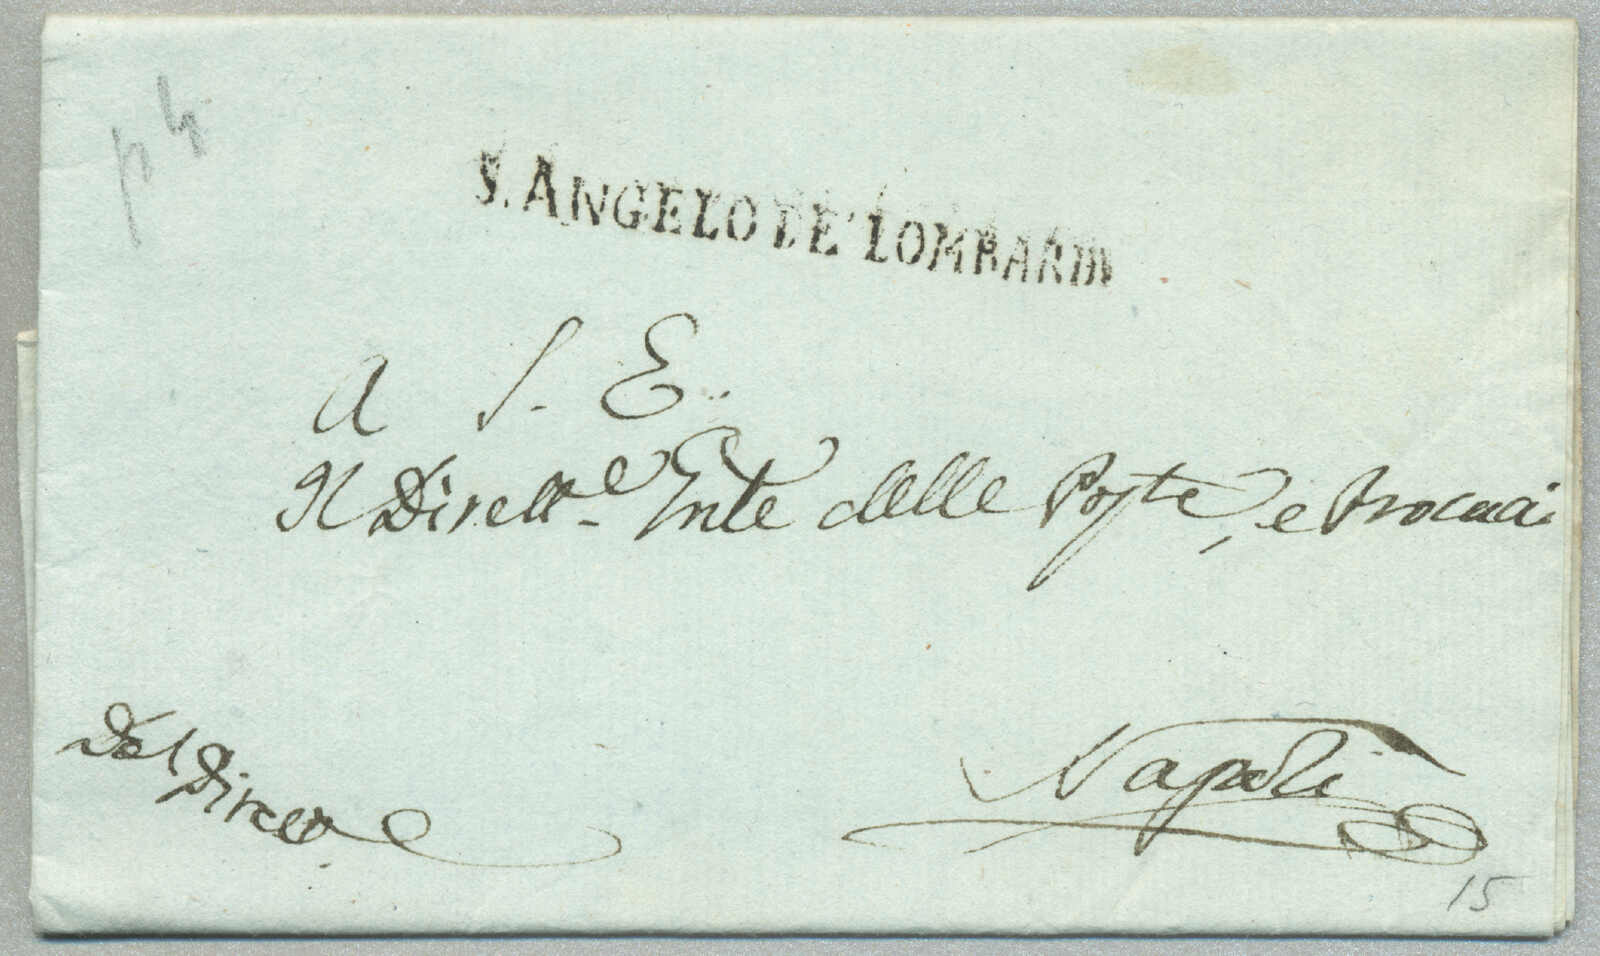 S. ANGELO DE' LOMBARDI
A S. E.
Il Dirett.e Gnle delle Poste, e Procacci
Dal Dirett.e
Napoli
15